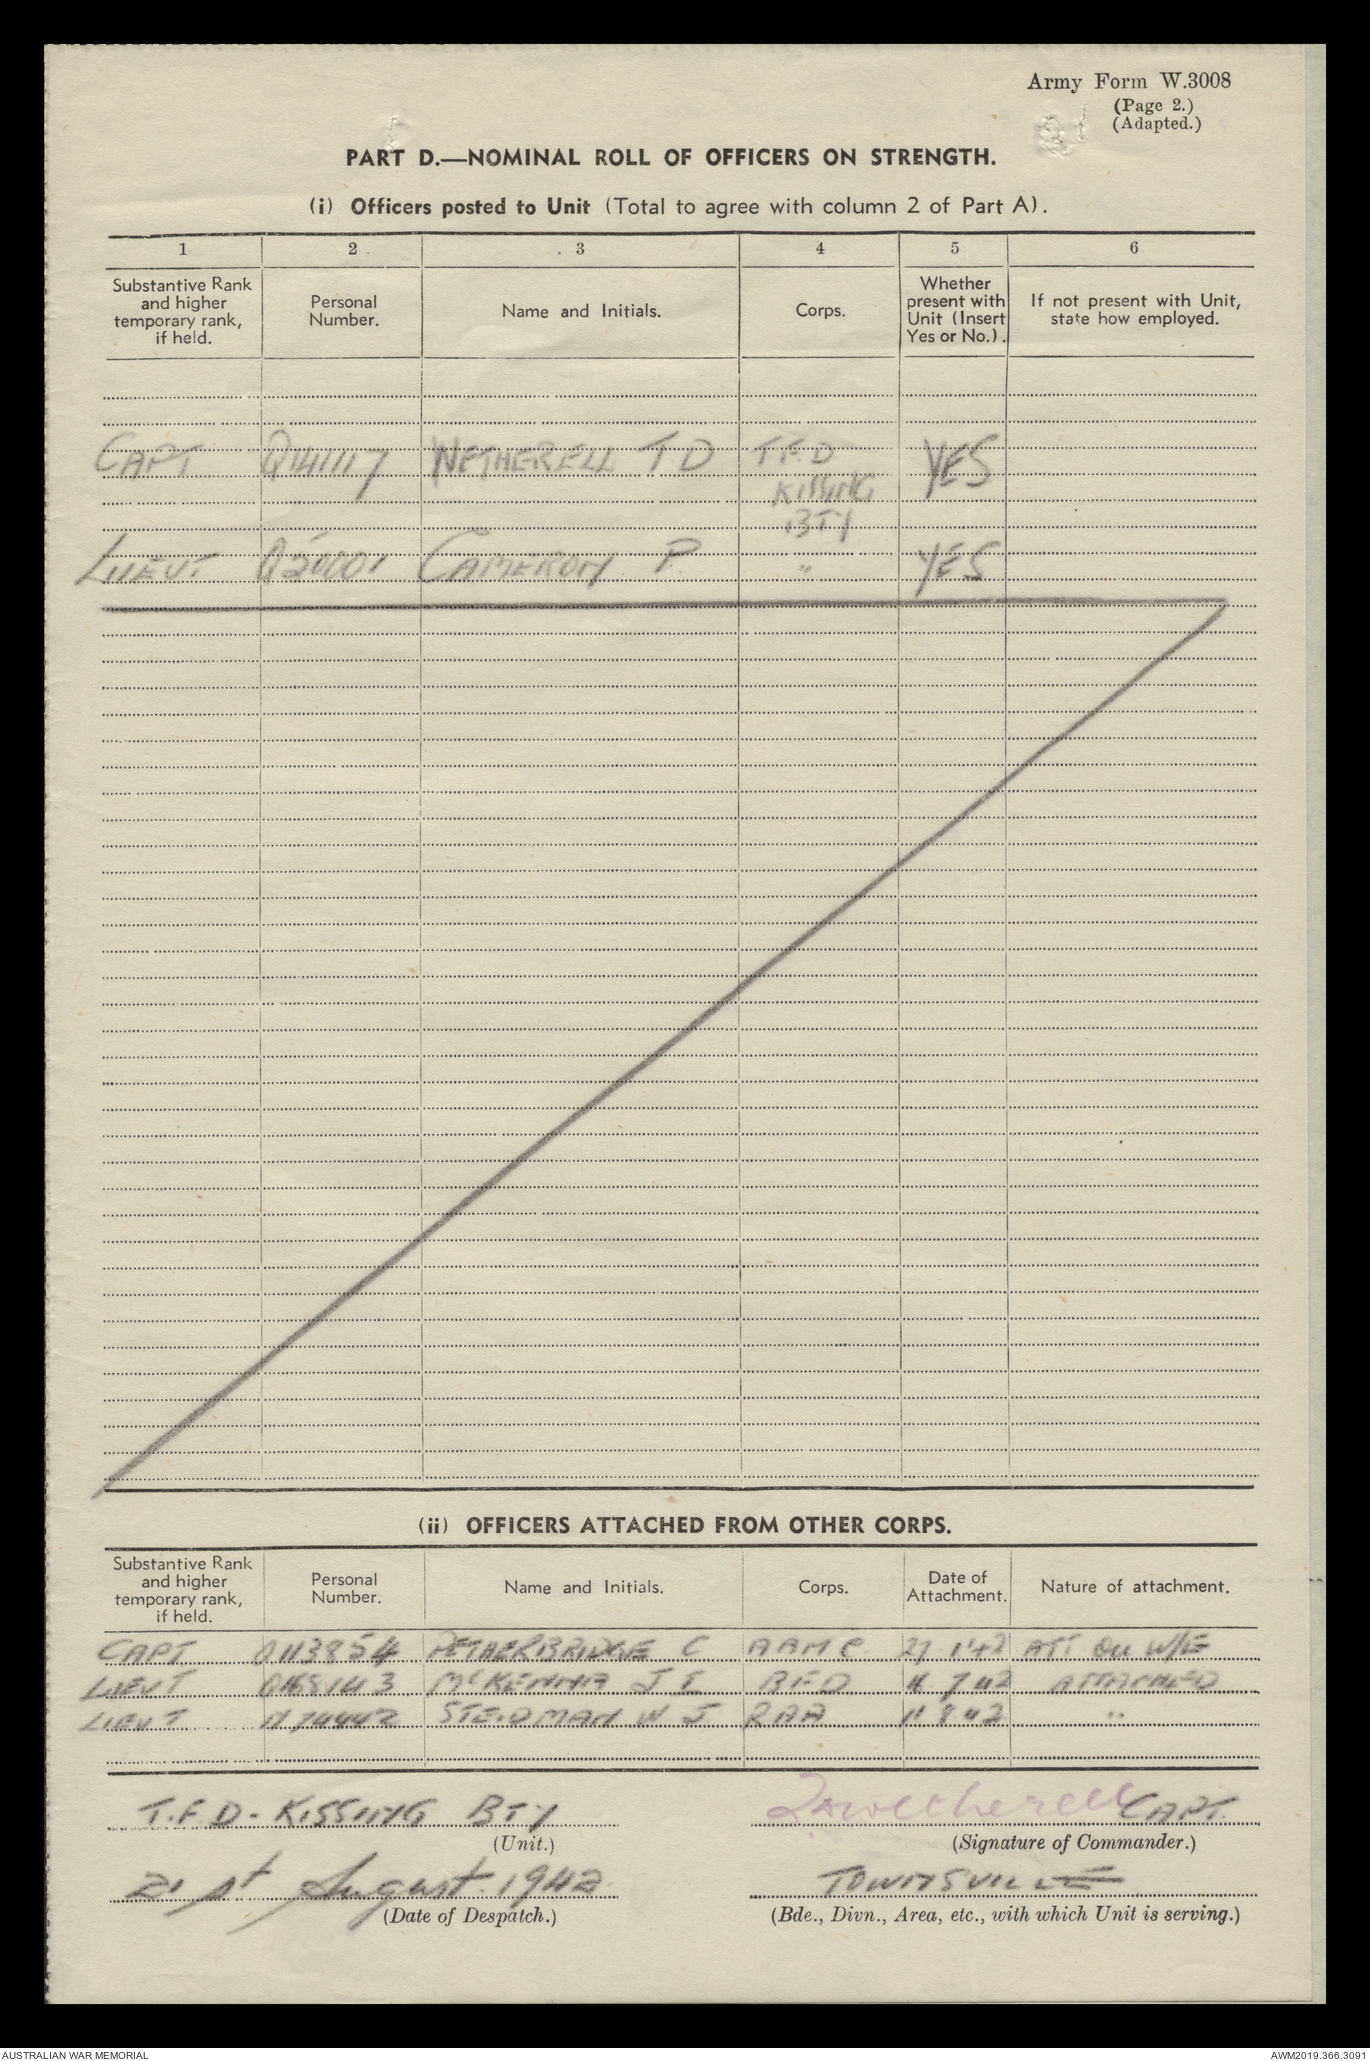 Army Form W.3008
(Page 2.)
(Adapted.)
PART D.—NOMINAL ROLL OF OFFICERS ON STRENGTH.
(i) Officers posted to Unit (Total to agree with column 2 of Part A).
1 2 3 4 5 6
Substantive Rank and higher temporary rank, if held. Personal Number. Name and Initials. Corps. Whether present with Unit (Insert Yes or No.). If not present with Unit, state how employed.
CAPT Q141117 NETHERELL T D T F D YES
KISSING
BTY
LIEUT CAMERON P. " YES
(ii) OFFICERS ATTACHED FROM OTHER CORPS.
Substantive Rank and higher temporary rank, if held. Personal Number. Name and Initials. Corps. Date of Attachment. Nature of attachment.
CAPT PETHERBRIDGE C AAMC 27 1 42 ATT ON W/E
LIEUT McKENNA J I 7 42 ATTACHED
LIEUT STEIDMAN W J RAA 11 8 42 "
T.F.D. KISSING BTY CAPT.
(Unit.) (Signature of Commander.)
21st August. 1942 TOWNSVILLE
(Date of Despatch.) (Bde., Divn., Area, etc., with which Unit is serving.)
AUSTRALIAN WAR MEMORIAL AWM2019.366.3091